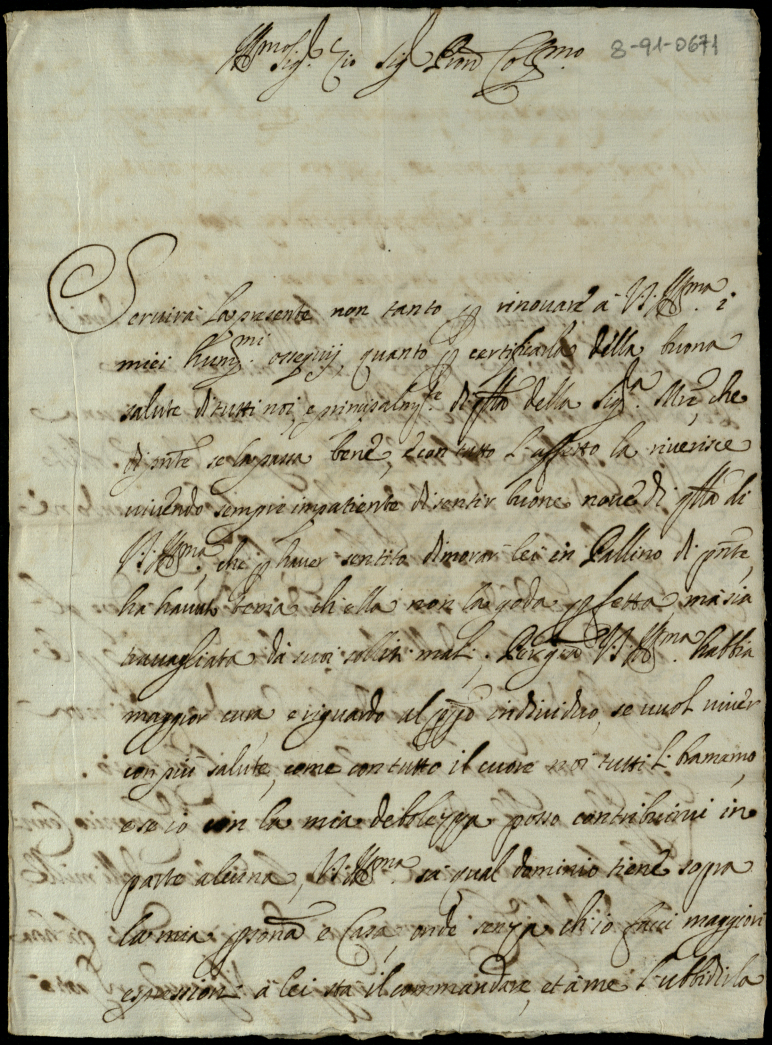 Ill.mo Sig.r Zio Sig.r Pron Col.mo 8-91-0671
Seruirà la presente non tanto p rinouare à V.S. Ill.ma i
miei hum.mi ossequij, quanto p certificarla della buona
salute di tutti noi, e principalm.te di qlla della Sig.ra Mre, che
di pnte se la passa bene, e con tutto l'affetto la riuerisce
viuendo sempre impatiente di sentir buone noue di qlla di
V.S. Ill.ma, che p hauer sentito dimorar lei in Pallino di pnte,
ha hauut tema ch ella non la goda pfetta, ma sia
trauagliata da suoi soliti mali. V.S. Ill.ma habbia
maggior cura, e riguardo al pprio indiuiduo, se vuol viuer
con più salute, come con tutto il cuore noi tutti li bramamo,
e se io con la mia debolezza posso contribuirui in
parte alcuna, V.S. Ill.ma sà qual dominio tiene sopra
la mia psona e Casa, onde senza ch'io facci maggiori
espressioni à lei sta il commandare, et à me l'ubbidirla